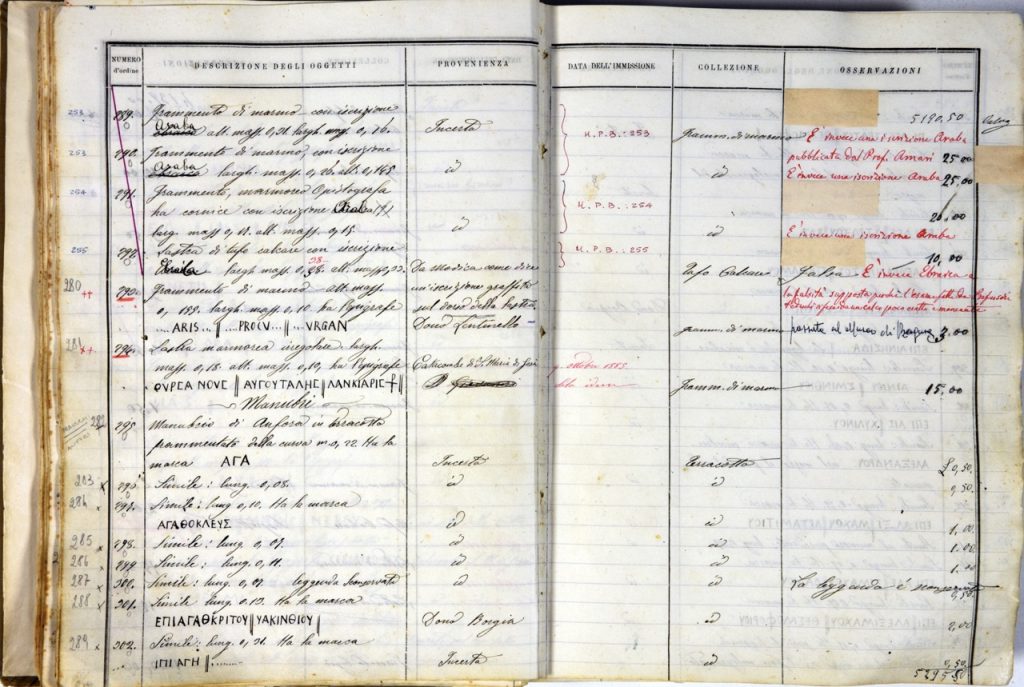 NUMERO d'ordine DESCRIZIONE DEGLI OGGETTI PROVENIENZA DATA DELL'IMMISSIONE COLLEZIONE OSSERVAZIONI
5190,50
253 289. Frammento di marmo con iscrizione
Araba alt. mass. 0,21. largh. mass. 0,16. Incerta K.P.B.: 253 framm. di marmo È invece una iscrizione Araba
253 290. Frammento di marmo, con iscrizione pubblicata dal Prof. Amari 25,00
Araba largh. mass. 0,26 alt. 0,165 id id È invece una iscrizione Araba 25,00
254 291. Frammento, marmorea Epitografa K.P.B.: 254
ha cornice con iscrizione Araba 20,00
larg. mass. 0,18. alt. mass. 0,15. id id È invece una iscrizione Araba
255 292. Lastra di tufo calcare con iscrizione K.P.B.: 255 10,00
largh. mass. 0,28. alt. mass. 0,22. Da Modica come dice Tufo Calcare Falsa È invece Ebraica
280 ++ 293. Frammento di marmo alt. mass. un'iscrizione graffita
0,155. largh. mass. 0,10. ha l'epigrafe sul dorso della
....ARIS || PROCV || VRGAN Dono Lenturello framm. di marmo passata al Museo di 3,00
281 ++ 294. Lastra marmorea irregolare largh.
mass. 0,18. alt. mass. 0,10, ha l'epigrafe Catacombe di S. Maria di Gesù ottobre 1885
ΟΥΡΕΑ ΝΟΥΕ || ΑΥΓΟΥΤΑΛΗϹ || ΛΑΝΚΙΑΡΙϹ framm. di marmo 15,00
Manubri
282 295. Manubrio di Anfora in terracotta
frammentato della curva m. 0,22. Ha la
marca ΑΓΑ Incerta terracotta £ 0,50.
283 x 296. Simile: lung. 0,08. id id 0,50.
284 x 297. Simile: lung. 0,10. Ha la marca
ΑΓΑΘΟΚΛΕΥΣ id id 1,00
285 x 298. Simile: lung. 0,07. id id 1.00
286 x 299. Simile: lung. 0,11. id id 1.00
287 x 300. Simile: lung. 0,07. leggenda sconservata id id La leggenda è sconservata 0,50.
288 x 301. Simile lung. 0,13. Ha la marca
ΕΠΙ ΑΓΑΘΚΡΙΤΟΥ || ΥΑΚΙΝΘΙΟΥ Dono Borgia id 2,00
289 x 302. Simile: lung. 0,21. Ha la marca
... ΙΠΙ ΑΓΗ ||........ Incerta id 0,50.